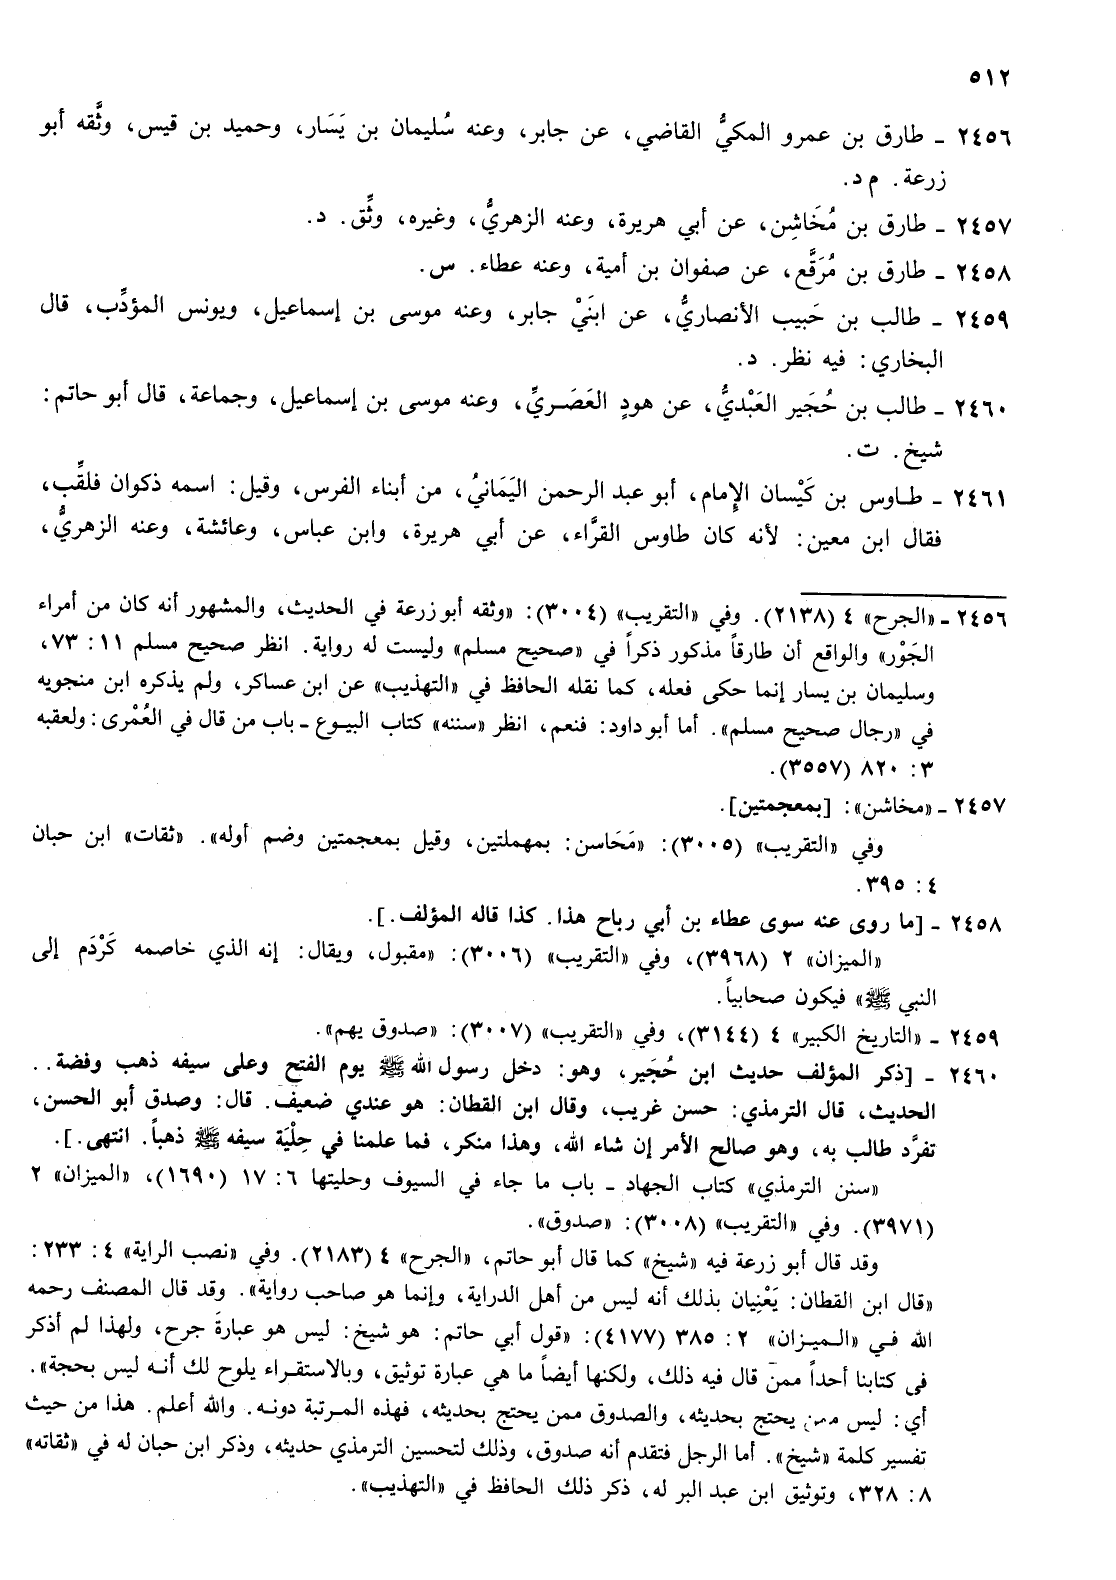 ٥١٢
٢٤٥٦ ـ طارق بن عمرو المكيُّ القاضي، عن جابر، وعنه سُليمان بن يَسَار، وحميد بن قيس، وثَّقه أبو
زرعة. م د.
٢٤٥٧ ـ طارق بن مُخَاشِن، عن أبي هريرة، وعنه الزهريُّ، وغيره، وثِّق. د.
٢٤٥٨ ـ طارق بن مُرَقَّع، عن صفوان بن أمية، وعنه عطاء. س.
٢٤٥٩ ـ طالب بن حَبيب الأنصاريُّ، عن ابنَيْ جابر، وعنه موسى بن إسماعيل، ويونس المؤدِّب، قال
البخاري: فيه نظر. د.
٢٤٦٠ ـ طالب بن حُجَير العَبْديُّ، عن هودٍ العَصَريِّ، وعنه موسى بن إسماعيل، وجماعة، قال أبو حاتم:
شيخ. ت.
٢٤٦١ ـ طاوس بن كَيْسان الإِمام، أبو عبد الرحمن اليَمَانيُ، من أبناء الفرس، وقيل: اسمه ذكوان فلقِّب،
فقال ابن معين: لأنه كان طاوس القرَّاء، عن أبي هريرة، وابن عباس، وعائشة، وعنه الزهريُّ،
٢٤٥٦ ـ «الجرح» ٤ (٢١٣٨). وفي «التقريب» (٣٠٠٤): «وثقه أبو زرعة في الحديث، والمشهور أنه كان من أمراء
الجَوْر» والواقع أن طارقاً مذكور ذكراً في «صحيح مسلم» وليست له رواية. انظر صحيح مسلم ١١: ٧٣،
وسليمان بن يسار إنما حكى فعله، كما نقله الحافظ في «التهذيب» عن ابن عساكر، ولم يذكره ابن منجويه
في «رجال صحيح مسلم». أما أبو داود: فنعم، انظر «سننه» كتاب البيوع ـ باب من قال في العُمْرى: ولعقبه
٣: ٨٢٠ (٣٥٥٧).
٢٤٥٧ ـ «مخاشن»: [بمعجمتين].
وفي «التقريب» (٣٠٠٥): «مَحَاسن: بمهملتين، وقيل بمعجمتين وضم أوله». «ثقات» ابن حبان
٤: ٣٩٥.
٢٤٥٨ ـ [ما روى عنه سوى عطاء بن أبي رباح هذا. كذا قاله المؤلف.].
«الميزان» ٢ (٣٩٦٨)، وفي «التقريب» (٣٠٠٦): «مقبول، ويقال: إنه الذي خاصمه كَرْدَم إلى
النبي ﷺ» فيكون صحابياً.
٢٤٥٩ ـ «التاريخ الكبير» ٤ (٣١٤٤)، وفي «التقريب» (٣٠٠٧): «صدوق يهم».
٢٤٦٠ ـ [ذكر المؤلف حديث ابن حُجَير، وهو: دخل رسول الله ﷺ يوم الفتح وعلى سيفه ذهب وفضة..
الحديث، قال الترمذي: حسن غريب، وقال ابن القطان: هو عندي ضعيف. قال: وصدق أبو الحسن،
تفرَّد طالب به، وهو صالح الأمر إن شاء الله، وهذا منكر، فما علمنا في حِلْيَة سيفه ﷺ ذهباً. انتهى.].
«سنن الترمذي» كتاب الجهاد ـ باب ما جاء في السيوف وحليتها ٦: ١٧ (١٦٩٠)، «الميزان» ٢
(٣٩٧١). وفي «التقريب» (٣٠٠٨): «صدوق».
وقد قال أبو زرعة فيه «شيخ» كما قال أبو حاتم، «الجرح» ٤ (٢١٨٣). وفي «نصب الراية» ٤: ٢٣٣:
«قال ابن القطان: يَعْنِيان بذلك أنه ليس من أهل الدراية، وإنما هو صاحب رواية». وقد قال المصنف رحمه
الله في «الميزان» ٢: ٣٨٥ (٤١٧٧): «قول أبي حاتم: هو شيخ: ليس هو عبارةَ جرح، ولهذا لم أذكر
في كتابنا أحداً ممن قال فيه ذلك، ولكنها أيضاً ما هي عبارة توثيق، وبالاستقراء يلوح لك أنه ليس بحجة».
أي: ليس ممن يحتج بحديثه، والصدوق ممن يحتج بحديثه، فهذه المرتبة دونه. والله أعلم. هذا من حيث
تفسير كلمة «شيخ». أما الرجل فتقدم أنه صدوق، وذلك لتحسين الترمذي حديثه، وذكر ابن حبان له في «ثقاته»
٨: ٣٢٨، وتوثيق ابن عبد البر له، ذكر ذلك الحافظ في «التهذيب».